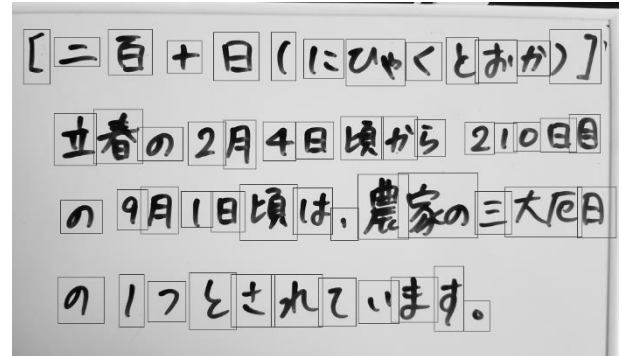 [二百十日(にひゃくとおか)]
立春の2月4日頃から 210日目
の 9月1日頃は、農家の三大厄日
の1つとされています。